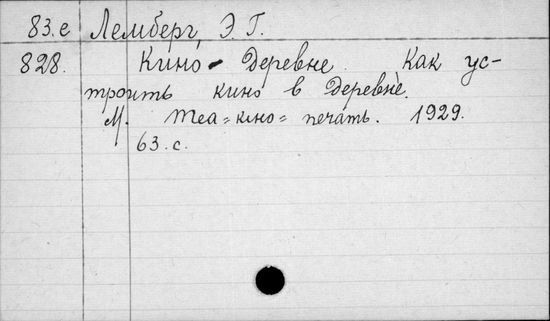 83.е Лемберг, Э. Г.
828. Кино - Деревне. Как ус-
троить кино в деревне.
М. Теа=кино=печать. 1929.
63. с.